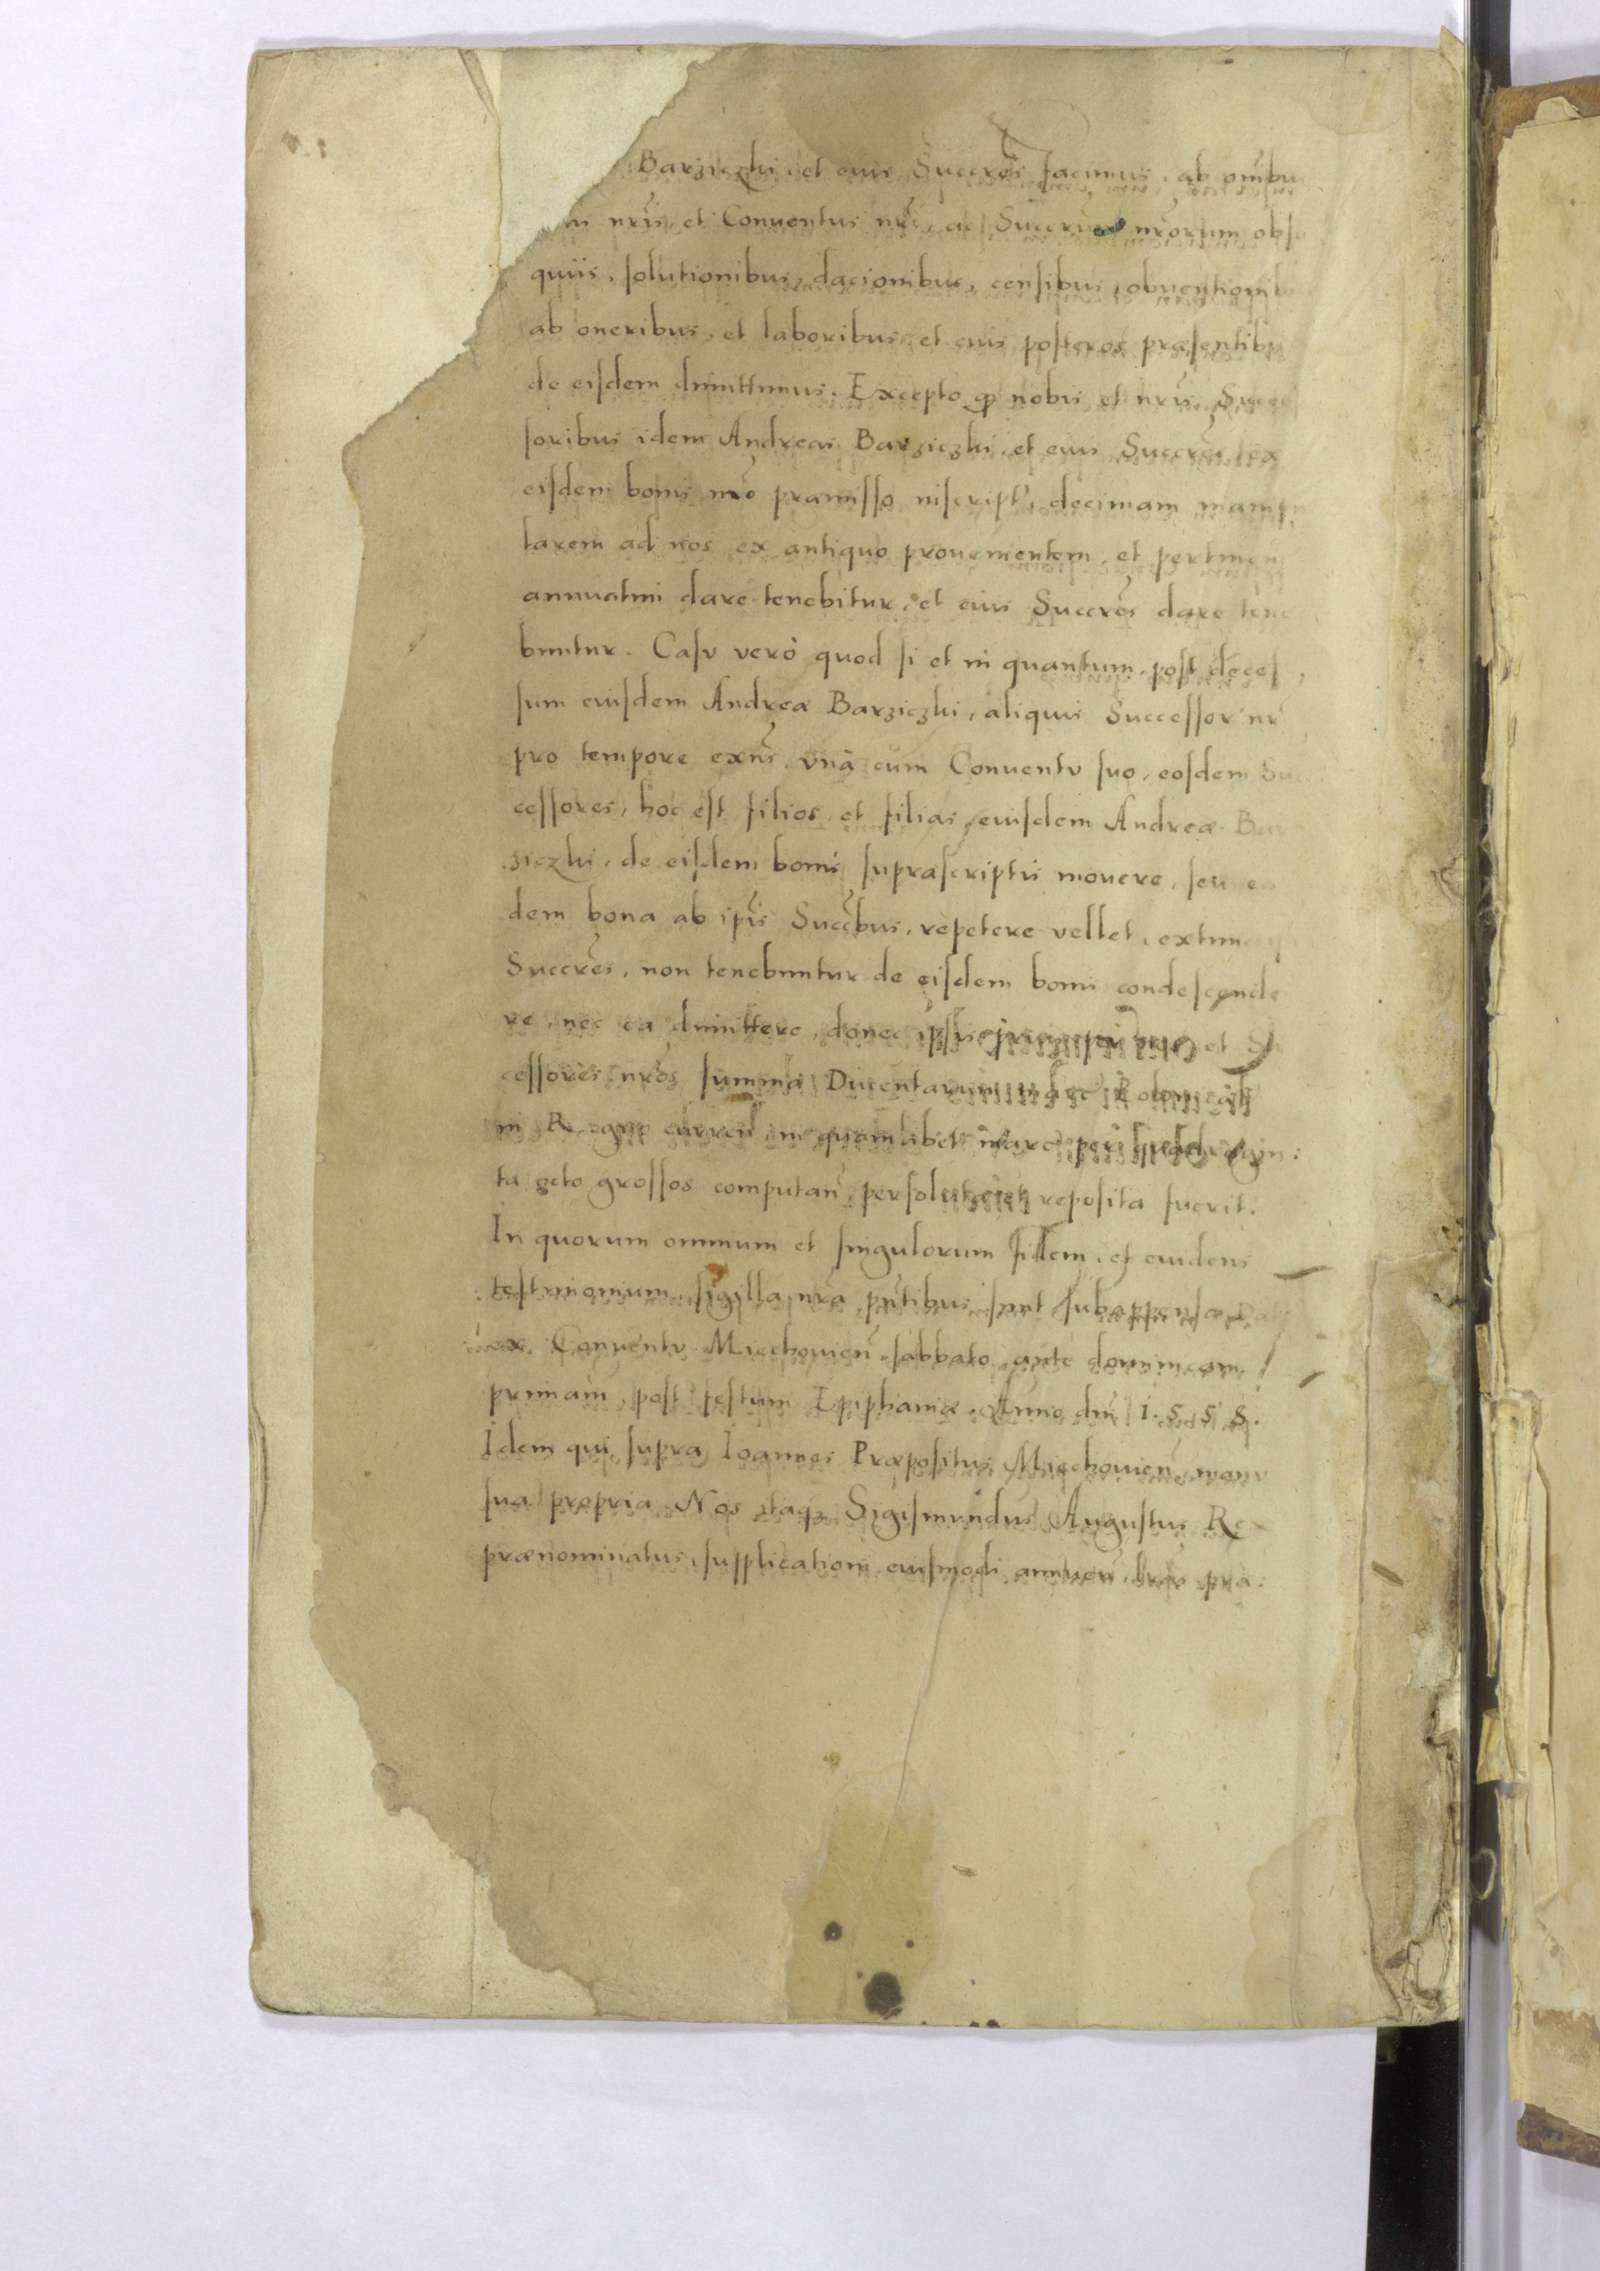 Barziczki, et eius Succres facimus, ab omibu
nris, et Conventus nri, ac nrorum obse
quiis, solutionibus, dacionibus, censibus, obventionib
ab oneribus, et laboribus, et eius posteros præsentibu
de eisdem dimittimus. Excepto qp nobis et nris Succes
soribus idem Andreas Barziczki, et eius Succres, ex
eisdem bonis præmisso decimam manipu
larem ad nos ex antiquo provenientem, et pertinen
annuatim dare tenebitur, et eius Succres dare tene
buntur. Casu verò quod si et in quantum, post deces
sum eiusdem Andreæ Barziczki, aliquis Successor nr
pro tempore exns, vnà cum Conventu suo, eosdem Suc
cessores, hoc est filios, et filias eiusdem Andreæ Bar
ziczki, de eisdem bonis suprascriptis movere, seu ea
dem bona ab ipis Succbus, repetere vellet, extunc
Succres, non tenebuntur de eisdem bonis condescende
re, nec ea dimittere, donec ipsis et Su
cessores nros summa Ducentarum marc Polonical
in Regno curren, in quamlibet marc per quadragin:
ta octo grossos computan, persoluta et reposita fuerit.
In quorum omnium et singulorum fidem, et evidens
testimonium, sigilla nra pntibus sunt subappensa Dat
ex Conventu Miechovien, sabbato ante dominicam
primam, post festum Epiphaniæ. Anno dni 1.5.5.8.
Idem qui supra Ioannes Præpositus Miechovien, manu
sua propria. Nos itaqz Sigismundus Augustus Rex
prænominatus, supplicationi eiusmodi annuen, lras præ: